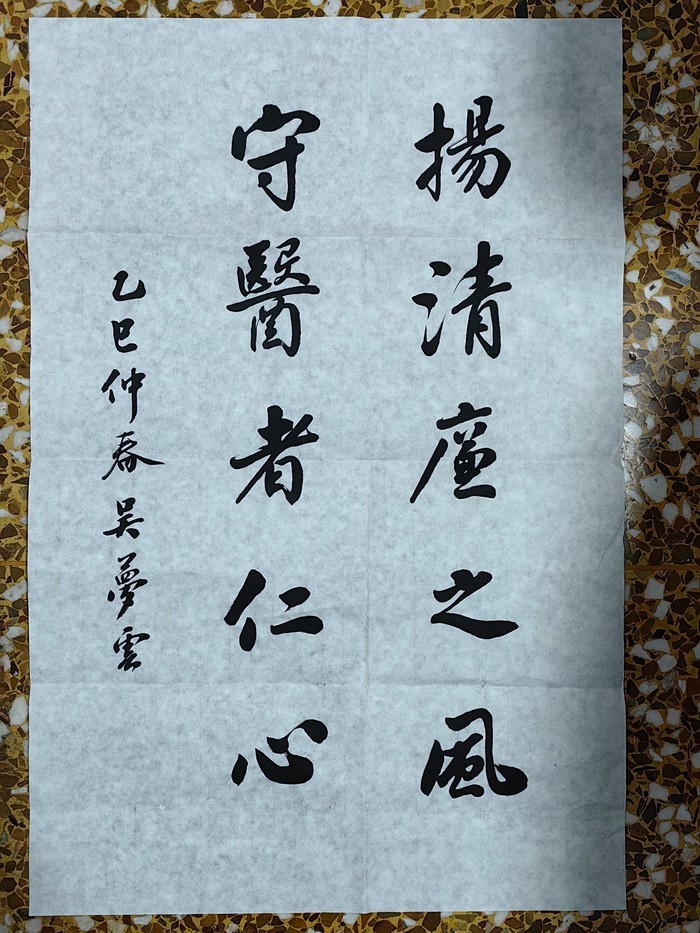 揚清廉之風
守醫者仁心
乙巳仲春吴夢雲